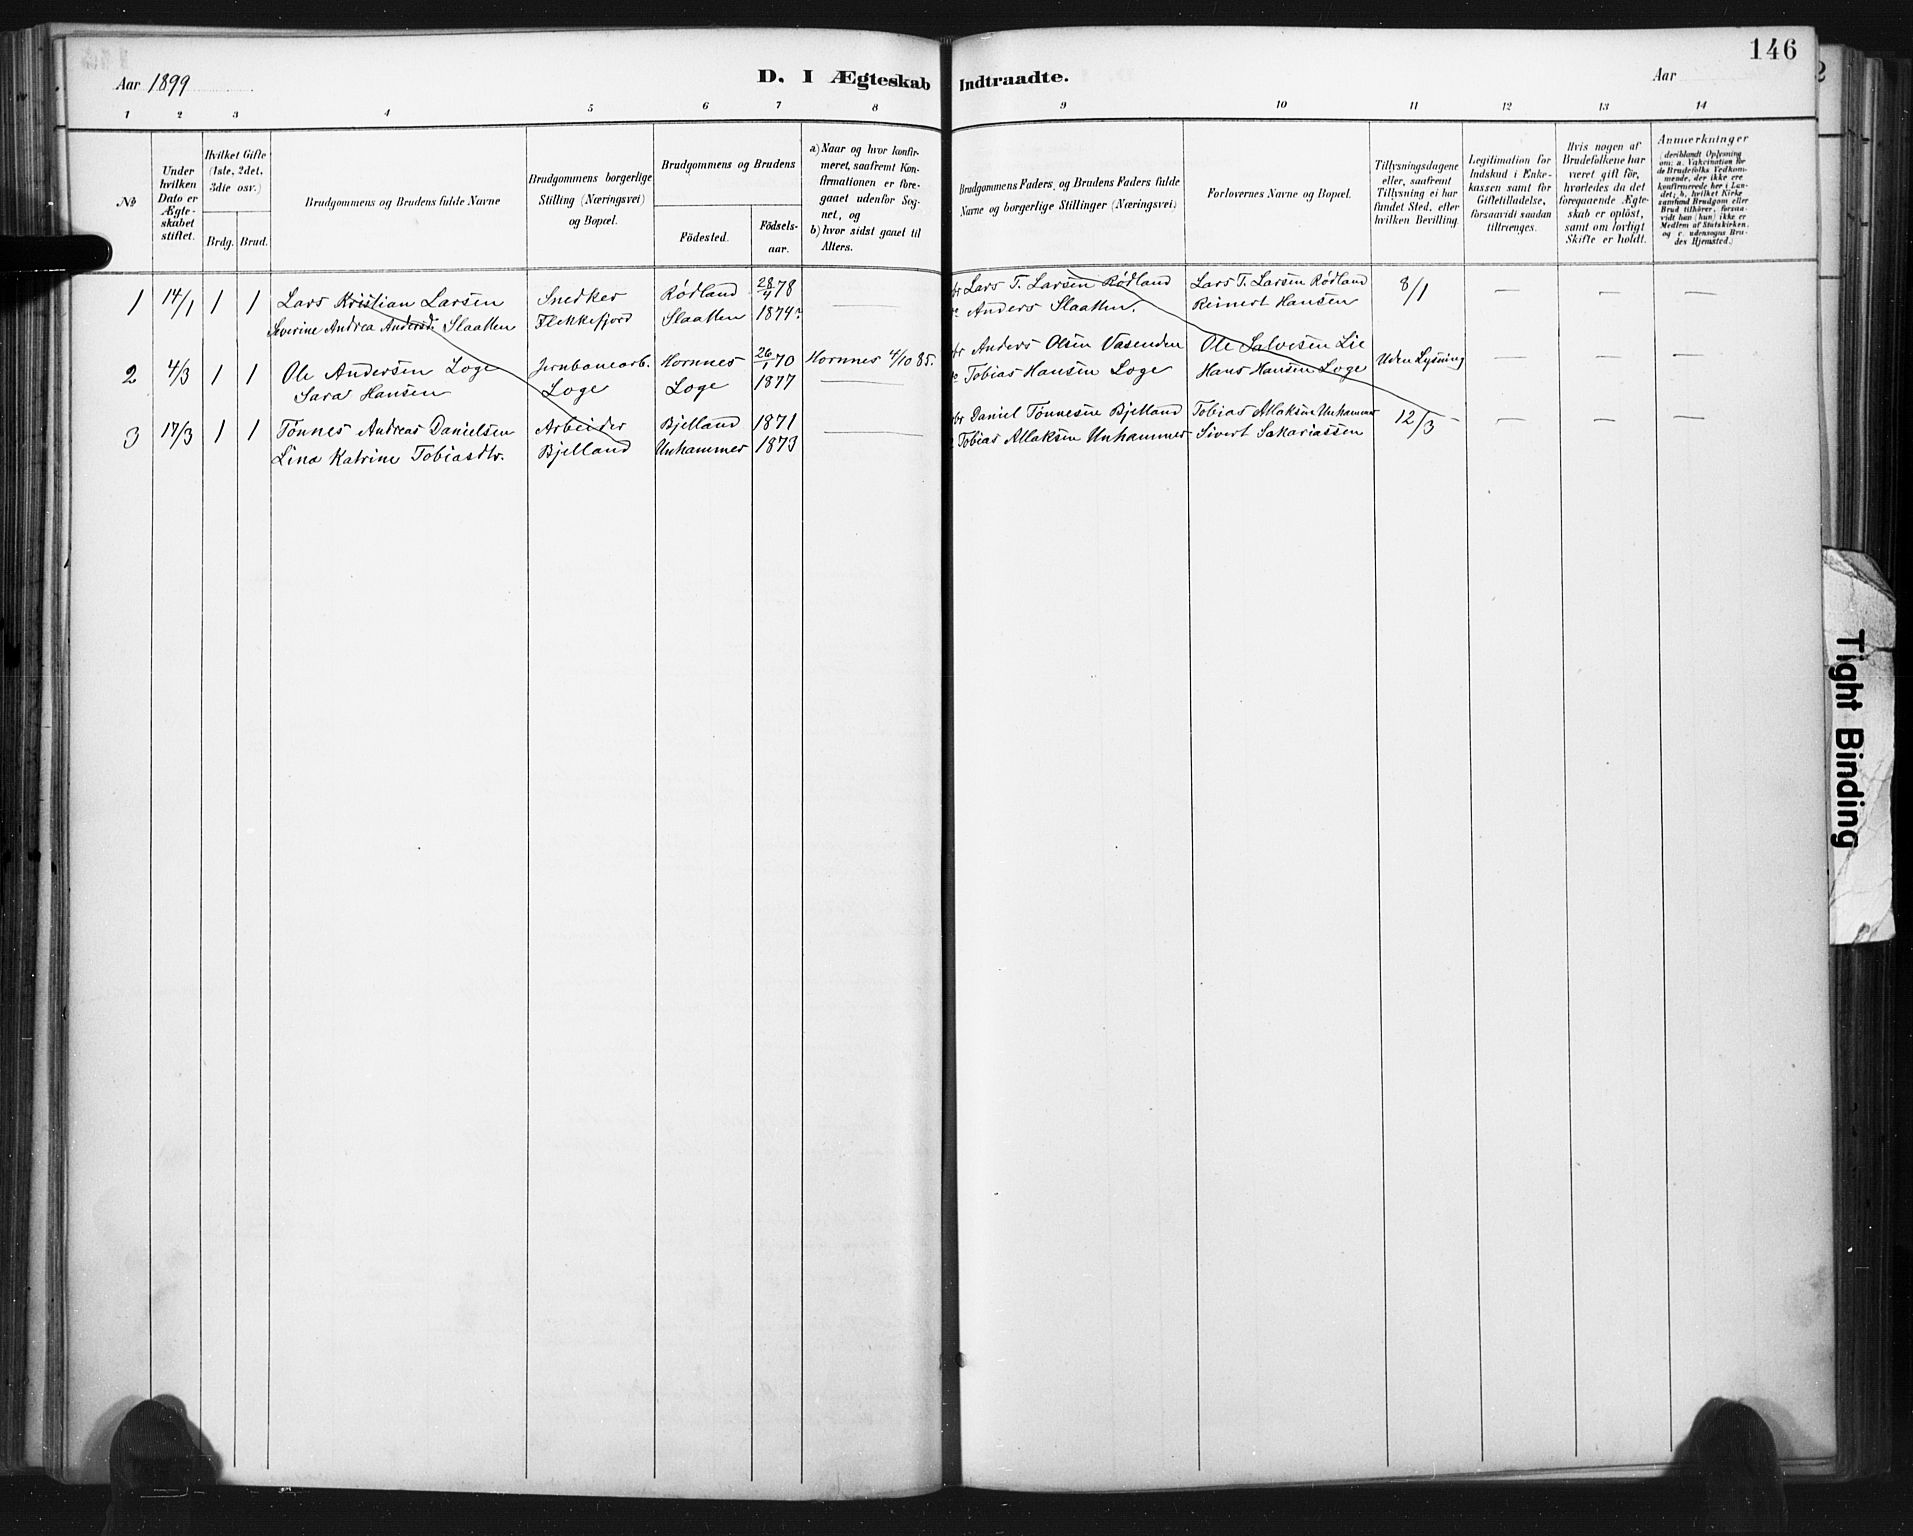 146
Aar 1899 D. I Ægteskab Indtraadte. Aar
1 2 3 4 5 6 7 8 9 10 11 12 13 14
№
Under
hvilken
Dato er
Ægte-
skabet
stiftet.
Hvilket Gifte
(1ste, 2det,
3die osv.)
Brdg. Brud.
Brudgommens og Brudens fulde Navne
Brudgommens borgerlige
Stilling (Næringsvei)
og Bopæl.
Brudgommens og Brudens
Födested.
Födsels-
aar.
a) Naar og hvor konfir-
meret, saafremt Kon-
firmationen er fore-
gaaet udenfor Sog-
net, og
b) hvor sidst gaaet til
Alters.
Brudgommens Faders, og Brudens Faders fulde
Navne og borgerlige Stillinger (Næringsvei)
Forlovernes Navne og Bopæl.
Tillysningsdagene
eller, saafremt
Tillysning ei har
fundet Sted, efter
hvilken Bevilling.
Legitimation for
Indskud i Enke-
kassen samt for
Giftetilladelse,
forsaavidt saadan
tiltrænges.
Hvis nogen af
Brudefolkene har
været gift för,
hvorledes da det
foregaaende Ægte-
skab er oplöst,
samt om lovligt
Skifte er holdt.
Anmærkninger
(deriblandt Oplysning
om: a. Vakcination for
de Brudefolks Vedkom-
mende, der ikke ere
konfirmerede her i Lan-
det; b. hvilket Kirke
samfund Brudgom eller
Brud tilhörer, forsaa-
vidt han (hun) ikke er
Medlem af Statskirken,
og c. udensogns Bru-
des Hjemsted.)
1 14/1 1 1 Lars Kristian Larsen Snedker Rødland 28/4 78 — Lars T. Larsen Rødland Lars T. Larsen Rødland 8/1 — — —
Severine Andrea Andersd. Slaatten Flekkefjord Slaatten 1874 Anders Slaatten. Reinert Hansen
2 4/3 1 1 Ole Andersen Loge Jernbanearb. Hornnes 26/1 70 Hornnes 4/10 85. Anders Olsen Vasenden Ole Salvesen Lie Uden Lysning — — —
Sara Hansen Loge Loge 1877 — Tobias Hansen Loge Hans Hansen Loge
3 17/3 1 1 Tönnes Andreas Danielsen Arbeider Bjelland 1871 — Daniel Tönnesen Bjelland Tobias Atlaksen Unhammer 12/3 — — —
Lina Katrine Tobiasdtr. Bjelland Unhammer 1873 Tobias Atlaksen Unhammer Sivert Sakariassen
Tight Binding